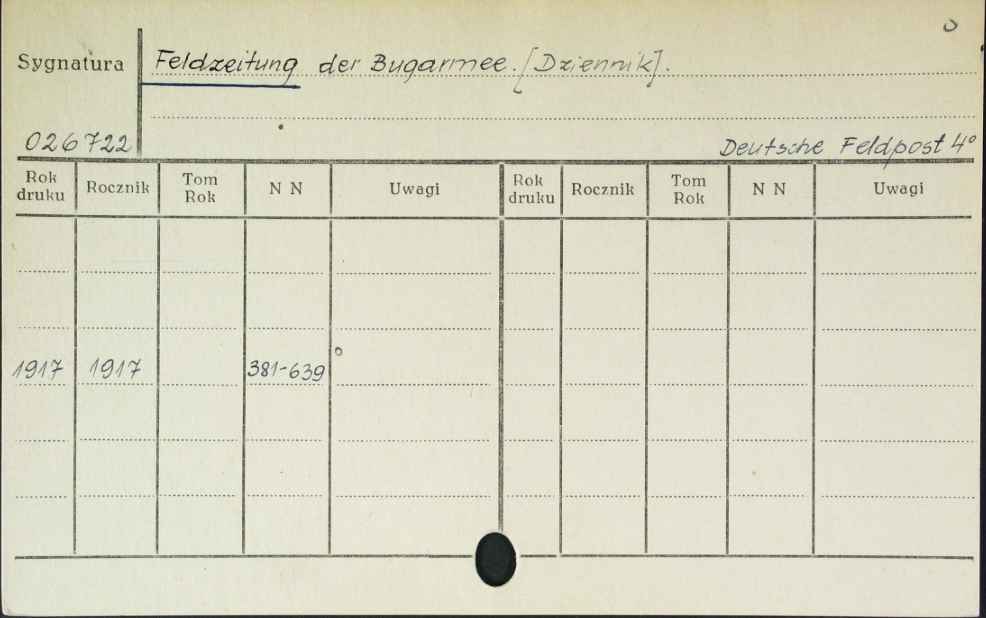 Sygnatura Feldzeitung der Bugarmee. [Dziennik].
026722 Deutsche Feldpost 4°
Rok druku Rocznik Tom Rok N N Uwagi Rok druku Rocznik Tom Rok N N Uwagi
1917 1917 381-639 °